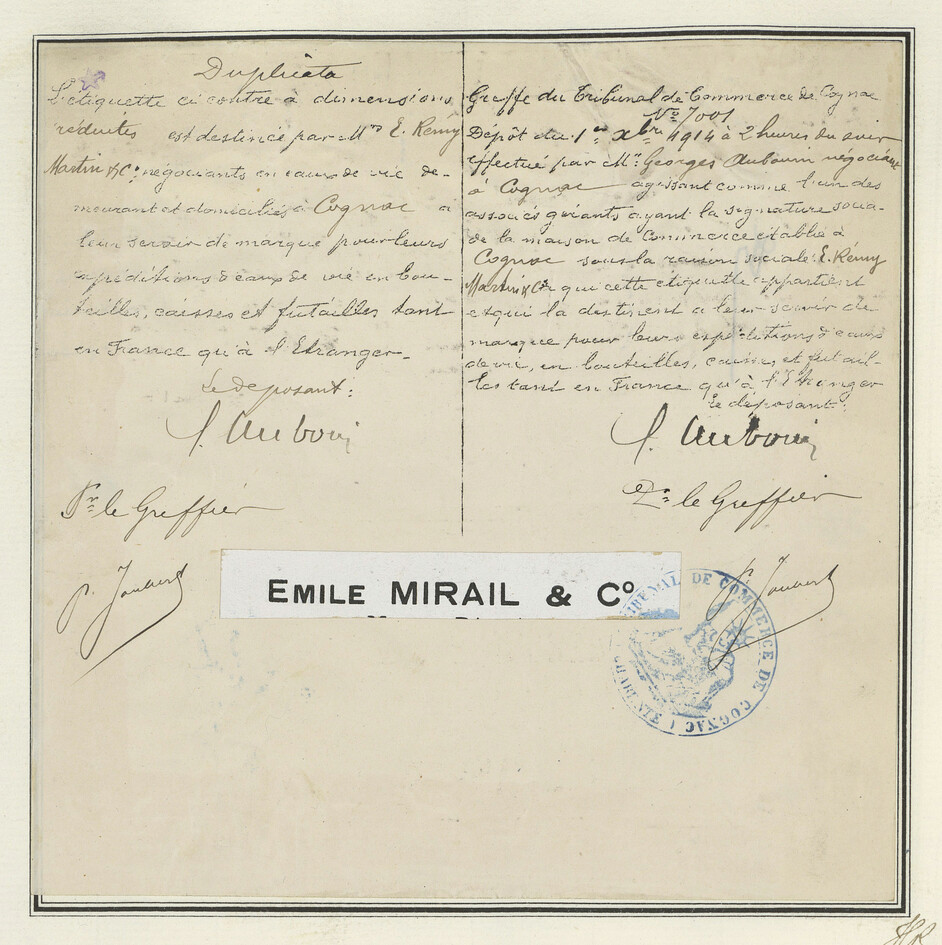 Duplicata
L'étiquette ci contre à dimensions
réduites est destinée par Mrs E. Rémy
Martin & Co négociants en eaux de vie de-
meurant et domiciliés à Cognac à
leur servir de marque pour leurs
expéditions d'eaux de vie en bou-
teilles, caisses et futailles tant
en France qu'à l'Etranger.
Le déposant:
G. Aubouin
Pr le Greffier
P. Joubert
Greffe du Tribunal de Commerce de Cognac
No 7001
Dépôt du 1er Xbre 1914 à 2 heures du soir
effectué par Mr Georges Aubouin négociant
à Cognac agissant comme l'un des
associés gérants ayant la signature socia-
de la maison de Commerce établie à
Cognac sous la raison sociale E. Rémy
Martin & Co à qui cette étiquette appartient
et qui la destinent à leur servir de
marque pour leurs expéditions d'eaux
de vie, en bouteilles, caisses, et futail-
les tant en France qu'à l'Etranger
Le déposant:
G. Aubouin
Pr le Greffier
P. Joubert
EMILE MIRAIL & Co
TRIBUNAL DE COMMERCE DE COGNAC (CHARENTE)